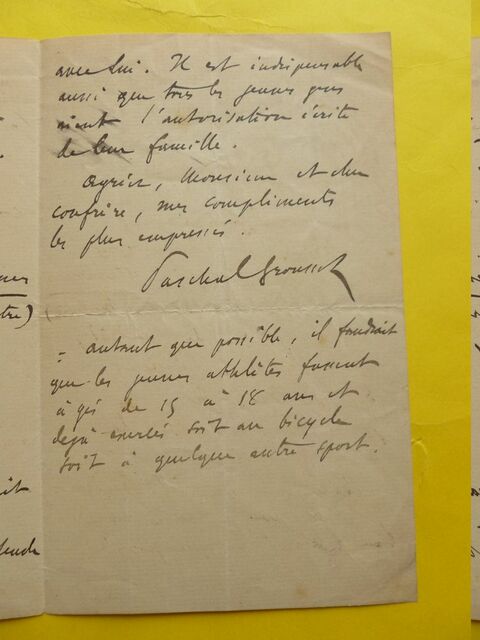 avec lui. Il est indispensable
aussi que tous les jeunes gens
aient l'autorisation écrite
de leur famille.
Agréez, Monsieur et cher
confrère, mes compliments
les plus empressés.
Paschal Grousset
= autant que possible, il faudrait
que les jeunes athlètes fussent
âgés de 15 à 18 ans et
déjà exercés soit au bicycle
soit à quelque autre sport.